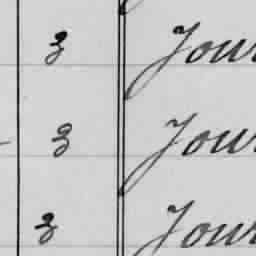 3 Jour
3 Jour
3 Jour